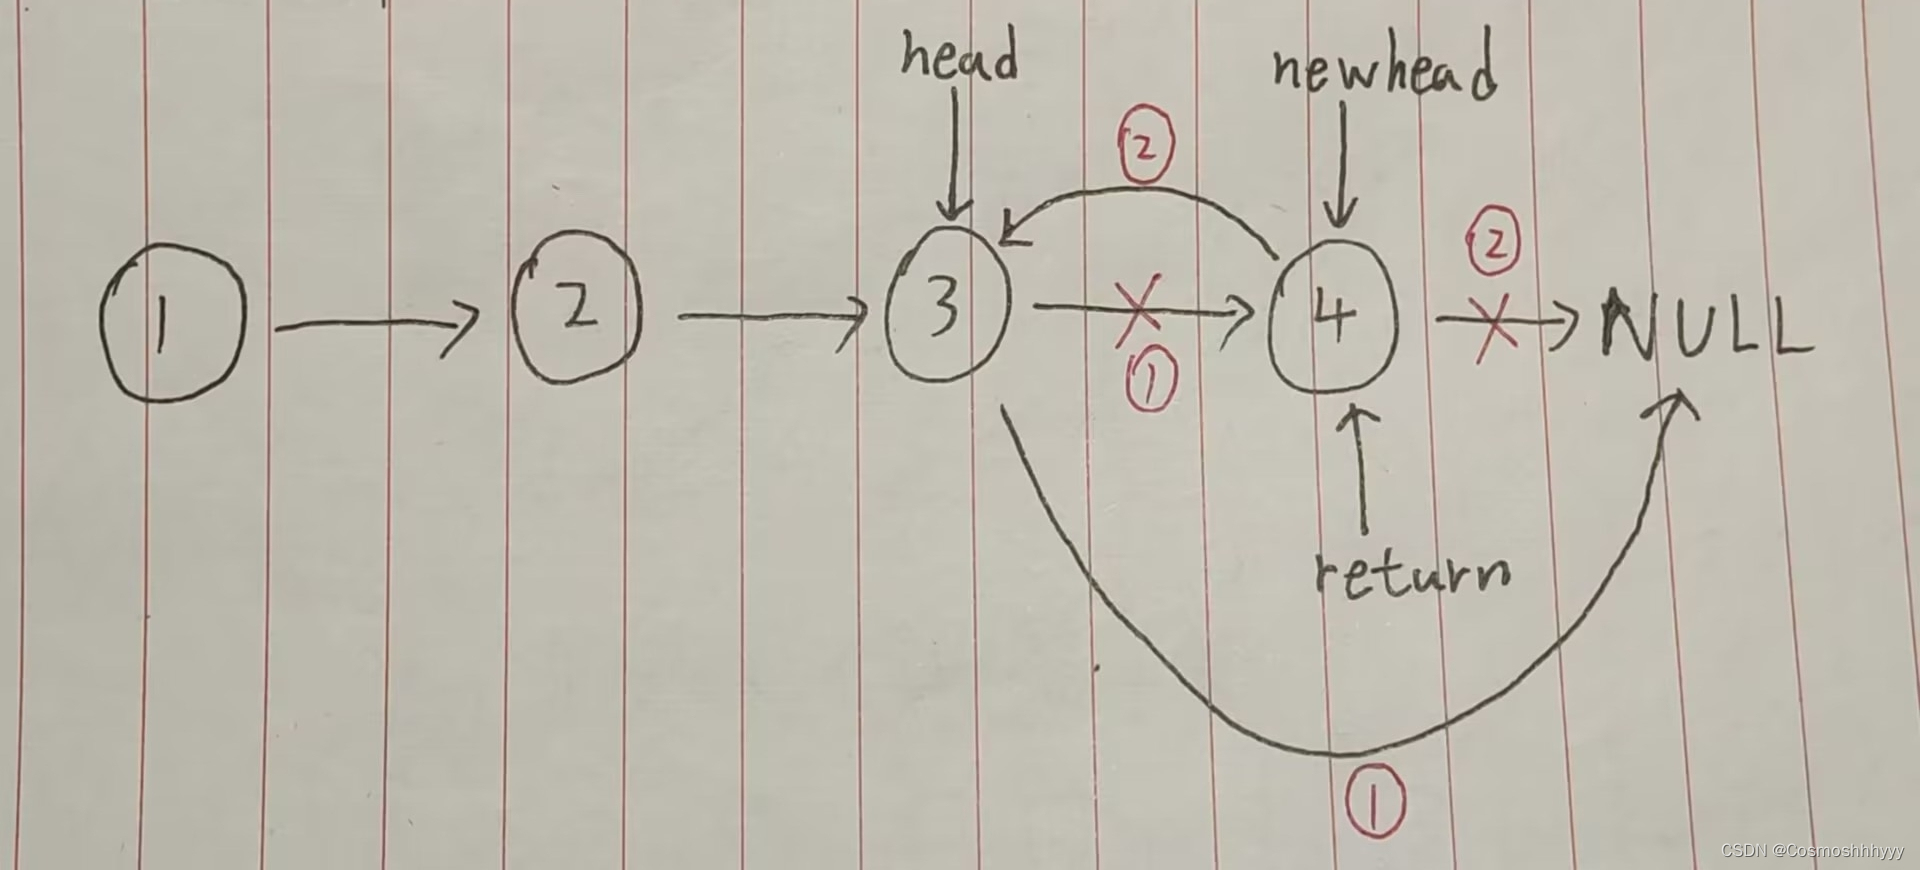 head
newhead
②
②
1
2
3
4
NULL
①
return
①
CSDN @Cosmoshhhyyy